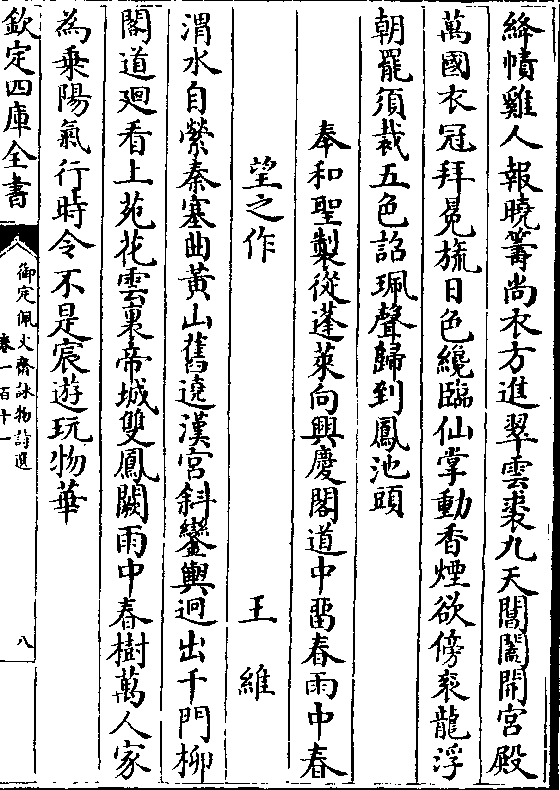 絳幘雞人報曉籌尚衣方進翠雲裘九天閶闔開宮殿
萬國衣冠拜冕旒日色纔臨仙掌動香煙欲傍衮龍浮
朝罷須裁五色詔珮聲歸到鳳池頭
奉和聖製從蓬萊向興慶閣道中留春雨中春
望之作 王維
渭水自縈秦塞曲黃山舊遶漢宮斜鑾輿迥出千門柳
閣道廻看上苑花雲裏帝城雙鳳闕雨中春樹萬人家
為乗陽氣行時令不是宸遊玩物華
欽定四庫全書
御定佩文齋詠物詩選
卷一百十一
八